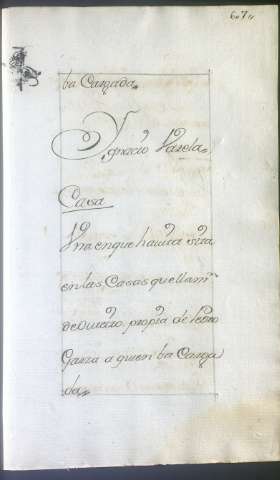 607,,
ba Cargada,,
Ygnacio Varela,,
Casa
Vna en que havita sita
en las Casas que llamn
de propia de Pedro
Garza a quien ba Carga
da,,